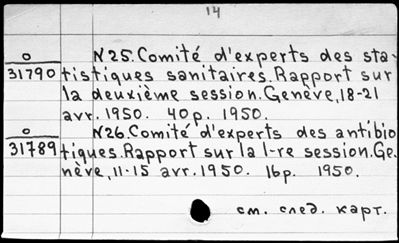 14
O N25. Comité d'experts des sta-
31790 tistiques sanitaires. Rapport sur
la deuxième session. Genève, 18-21
avr. 1950. 40p. 1950.
O N26. Comité d'experts des antibio
31789 tiques. Rapport sur la 1-re session. Ge-
nève, 11-15 avr. 1950. 16p. 1950.
см. след. карт.